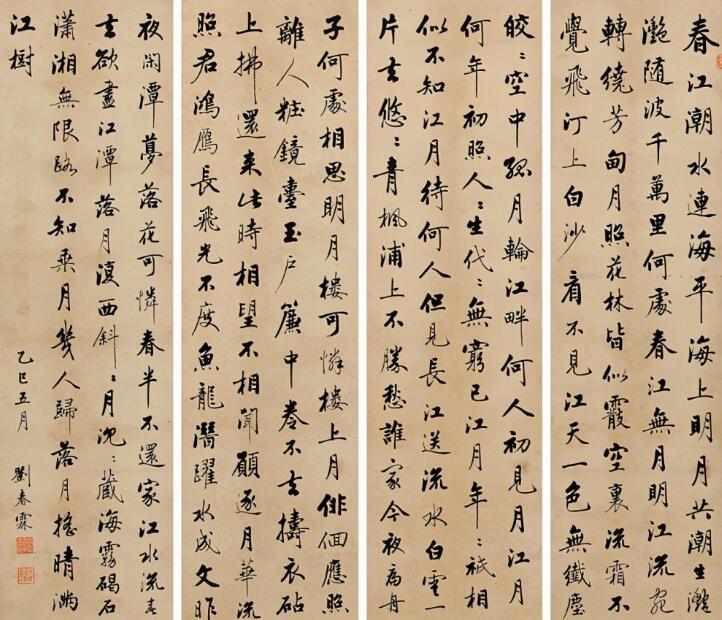 春江潮水連海平海上明月共潮生灧
灧隨波千萬里何處春江無月明江流宛
轉繞芳甸月照花林皆似霰空裏流霜不
覺飛汀上白沙看不見江天一色無纖塵
皎〻空中孤月輪江畔何人初見月江月
何年初照人〻生代〻無窮已江月年〻祇相
似不知江月待何人但見長江送流水白雲一
片去悠〻青楓浦上不勝愁誰家今夜扁舟
子何處相思明月樓可憐樓上月徘徊應照
離人粧鏡臺玉戶簾中卷不去擣衣砧
上拂還來此時相望不相聞願逐月華流
照君鴻鴈長飛光不度魚龍潛躍水成文昨
夜閑潭夢落花可憐春半不還家江水流春
去欲盡江潭落月復西斜〻月沈〻藏海霧碣石
瀟湘無限路不知乘月幾人歸落月搖情滿
江樹
乙巳五月 劉春霖